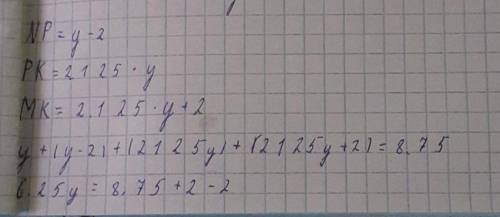 NP = y - 2
PK = 2 1 2 5 · y
MK = 2. 1 2 5 · y + 2
y + (y - 2) + (2 1 2 5 y) + (2 1 2 5 y + 2) = 8. 7 5
6. 2 5 y = 8. 7 5 + 2 - 2